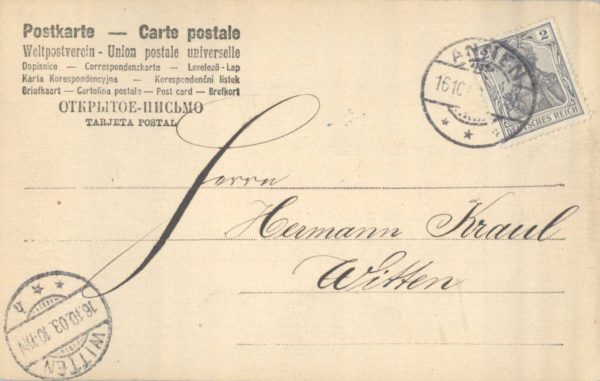 Postkarte — Carte postale
Weltpostverein - Union postale universelle
Dopisnice — Correspondenzkarte — Levelező-Lap
Karta Korespondencyjna — Korespondenční lístek
Briefkaart — Cartolina postale — Post card — Brefkort
ОТКРЫТОЕ-ПИСЬМО
TARJETA POSTAL
ANNEN
16.10
2
DEUTSCHES REICH
Herrn
Hermann Kraul
Witten
16.10.03. 10-11N
WITTEN